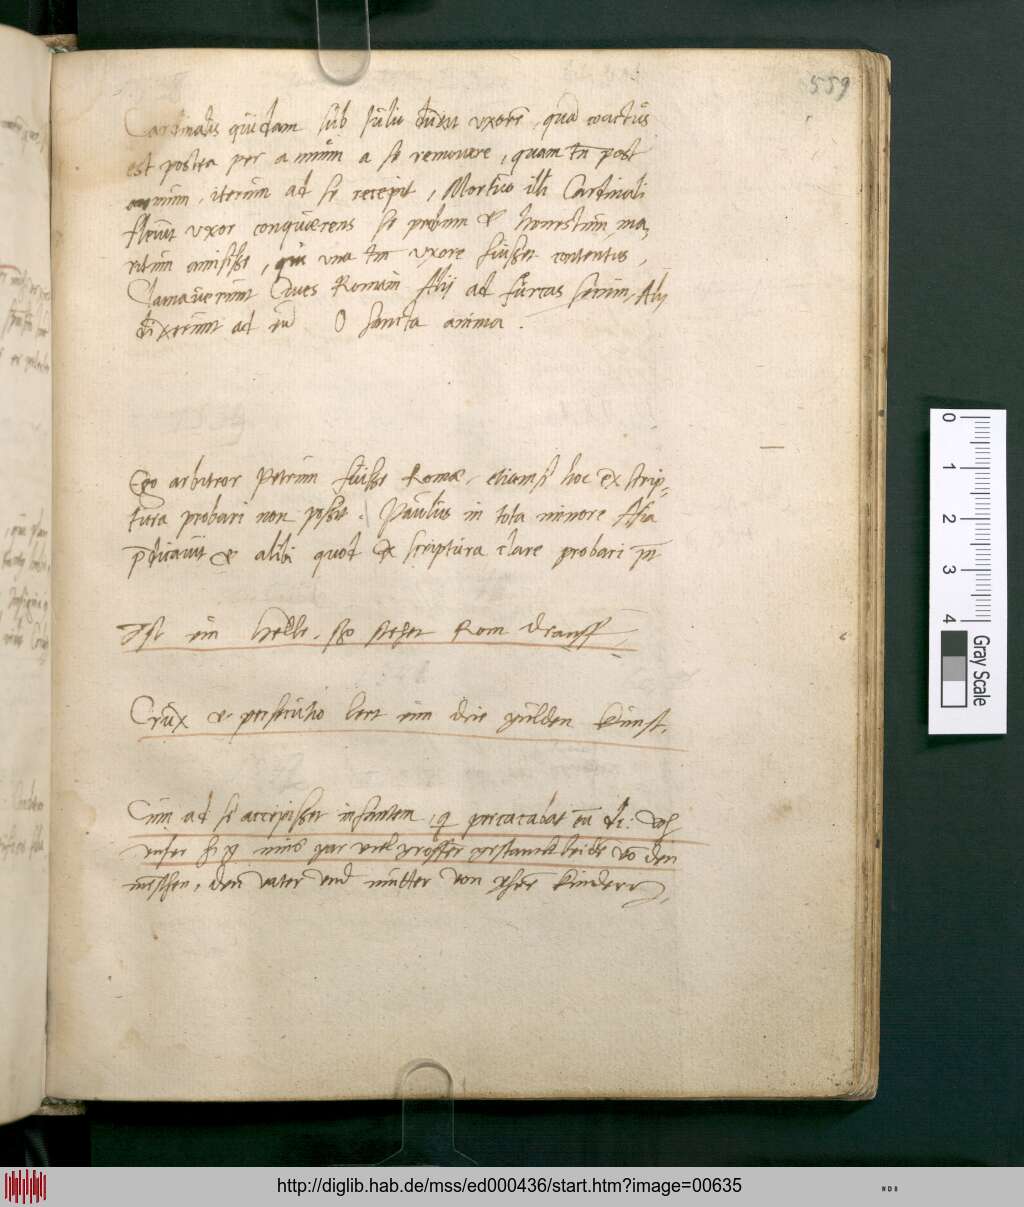 559
Cardinalis quidam sub Julio duxit uxorē, quā coactus
est postea per annum a se removere, quam tn̄ post
annum, iterum ad se recepit, Mortuo illi Cardinali
flevit uxor conquaerens se probum et honestum ma,
ritum amisisse, qui una tm̄ uxore fuisset contentus,
Clamaverunt Cives Romani Alij ad furcas secum, Alij
dixerunt ad eū O sancta anima.
Ego arbitror Petrum fuisse Romae, etiamsi hoc ex scrip,,
tura probari non possit. Paulus in tota minore Asia
p̄dicavit et alibi quod ex scriptura clare probari pt̄
Ist ein Helle, szo stehet Rom drauff,
Crux et persecutio lert eim die gulden kunst,
Cum ad se accepisset infantem, q
unser gar viel grosser gestanck leide vō den
menschen, den vater und mutter von yhrē kindern,
0
1
2
3
4
Gray Scale
http://diglib.hab.de/mss/ed000436/start.htm?image=00635